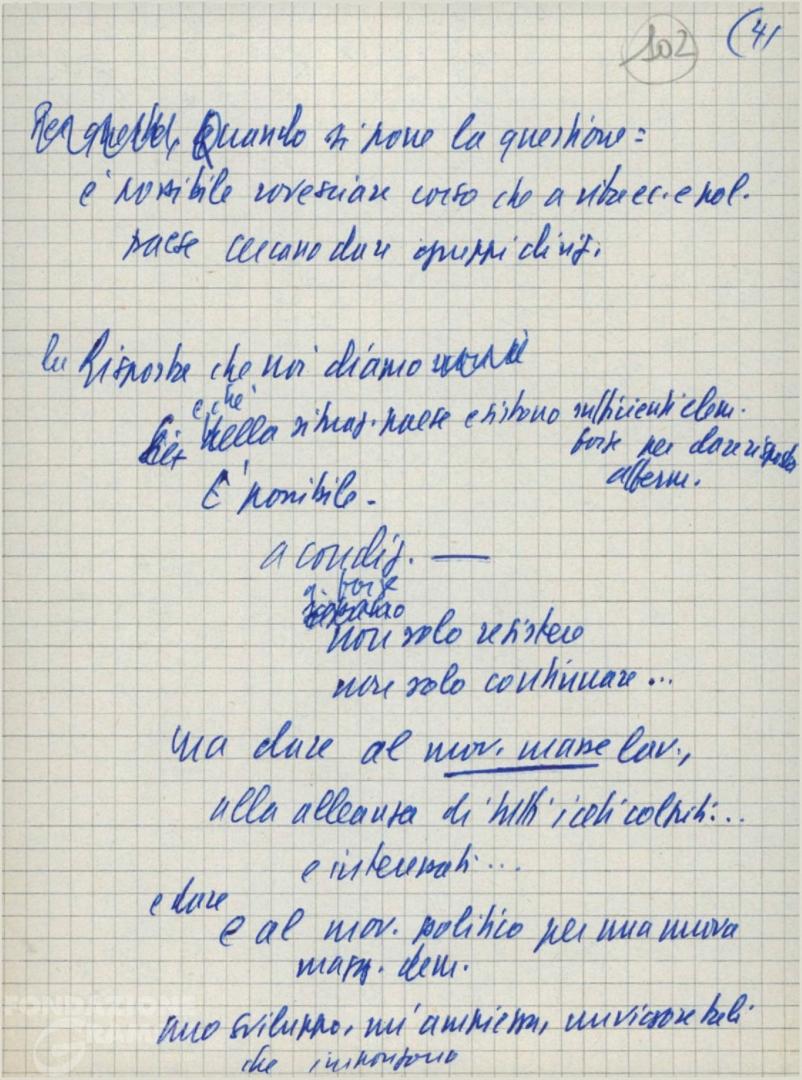 102 (4)
Quando si pone la questione:
è possibile rovesciare corso che a vita ec. e pol.
paese cercano dare gruppi dirig.
la Risposta che noi diamo
è che
nella situaz. paese esistono sufficienti elem.
forse per dare risposta
afferm.
E' possibile.
a condiz. —
non solo resistere
non solo continuare...
ma dare al mov. masse lav.,
alla alleanza di tutti i ceti colpiti...
e interessati...
e dare
e al mov. politico per una nuova
magg. dem.
uno sviluppo, un'ampiezza, un vigore tali
che impongano
FONDAZIONE